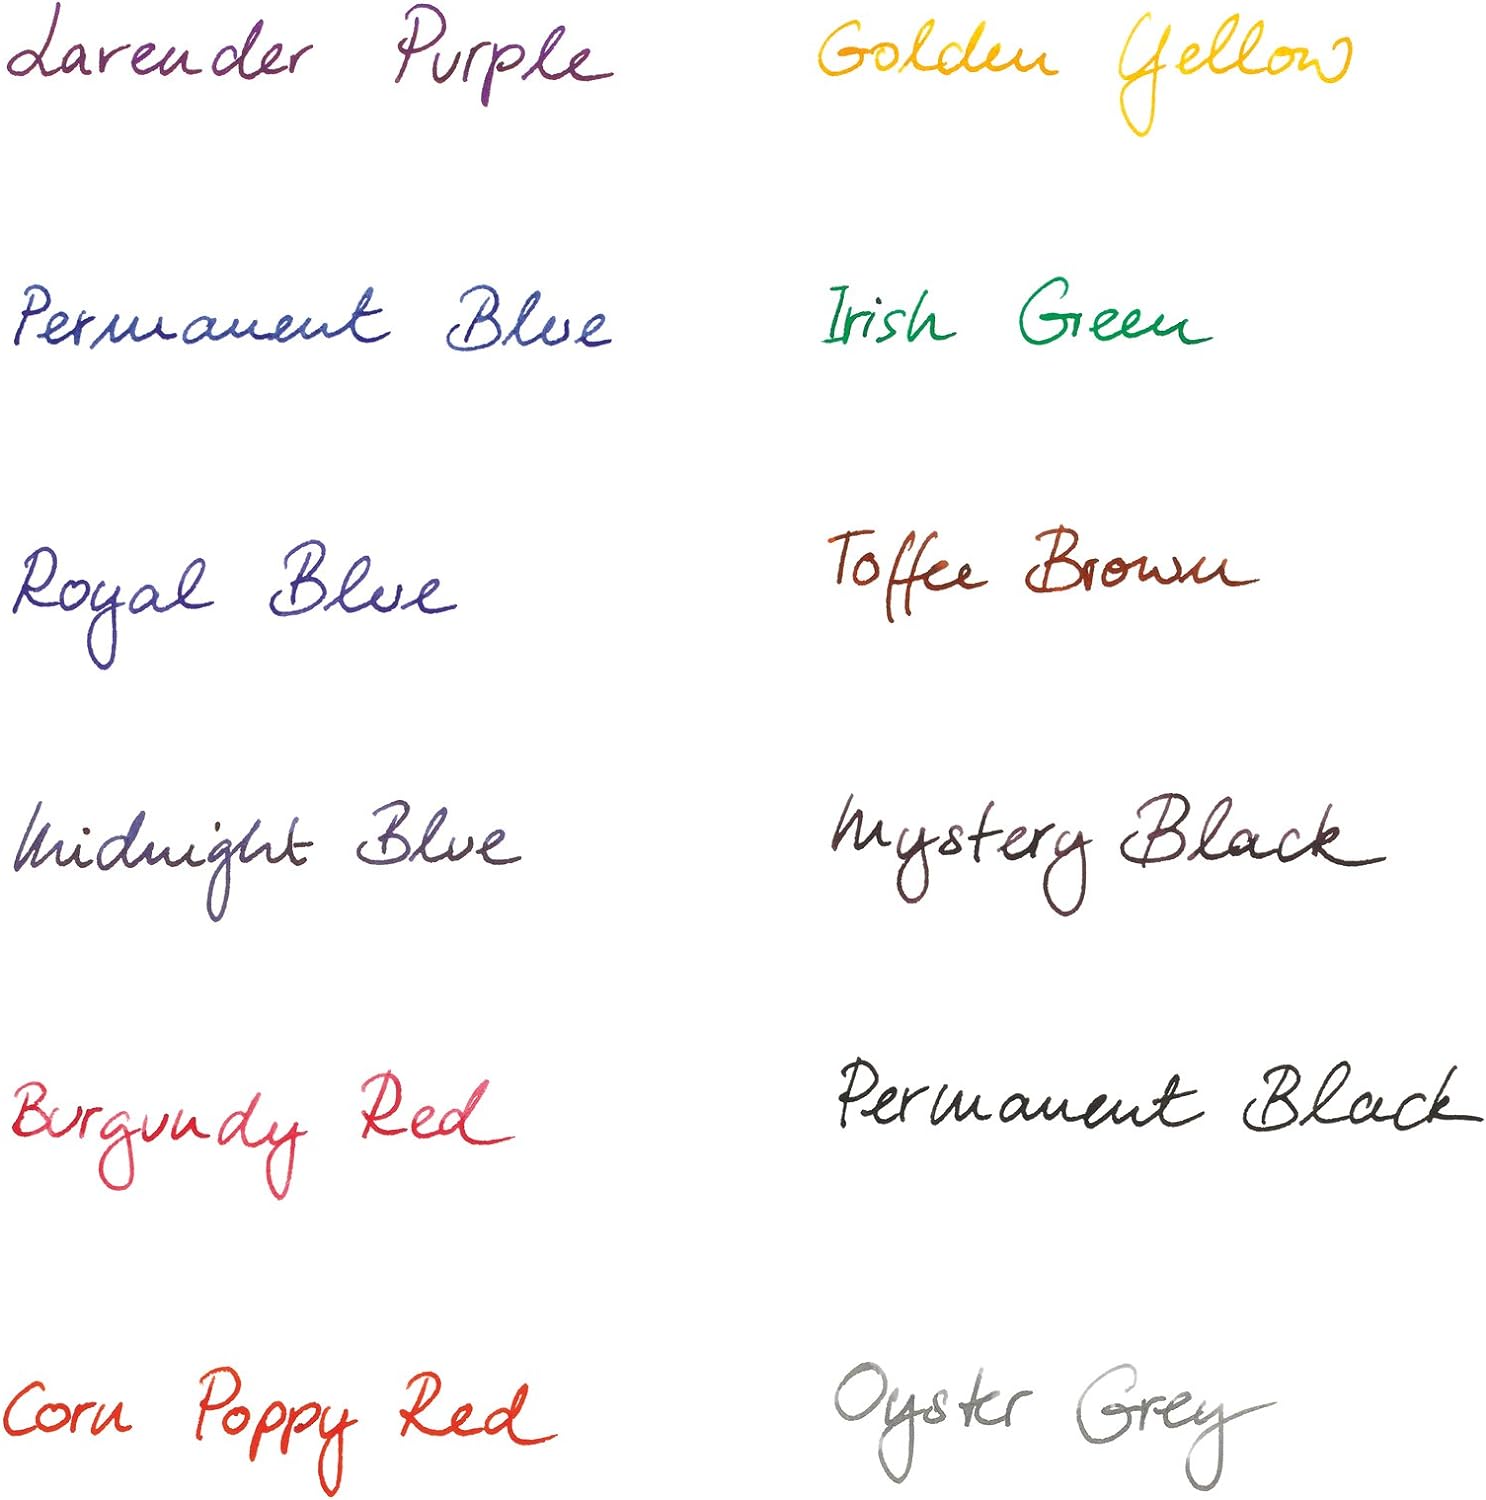 Lavender Purple
Golden Yellow
Permanent Blue
Irish Green
Royal Blue
Toffee Brown
Midnight Blue
Mystery Black
Burgundy Red
Permanent Black
Corn Poppy Red
Oyster Grey